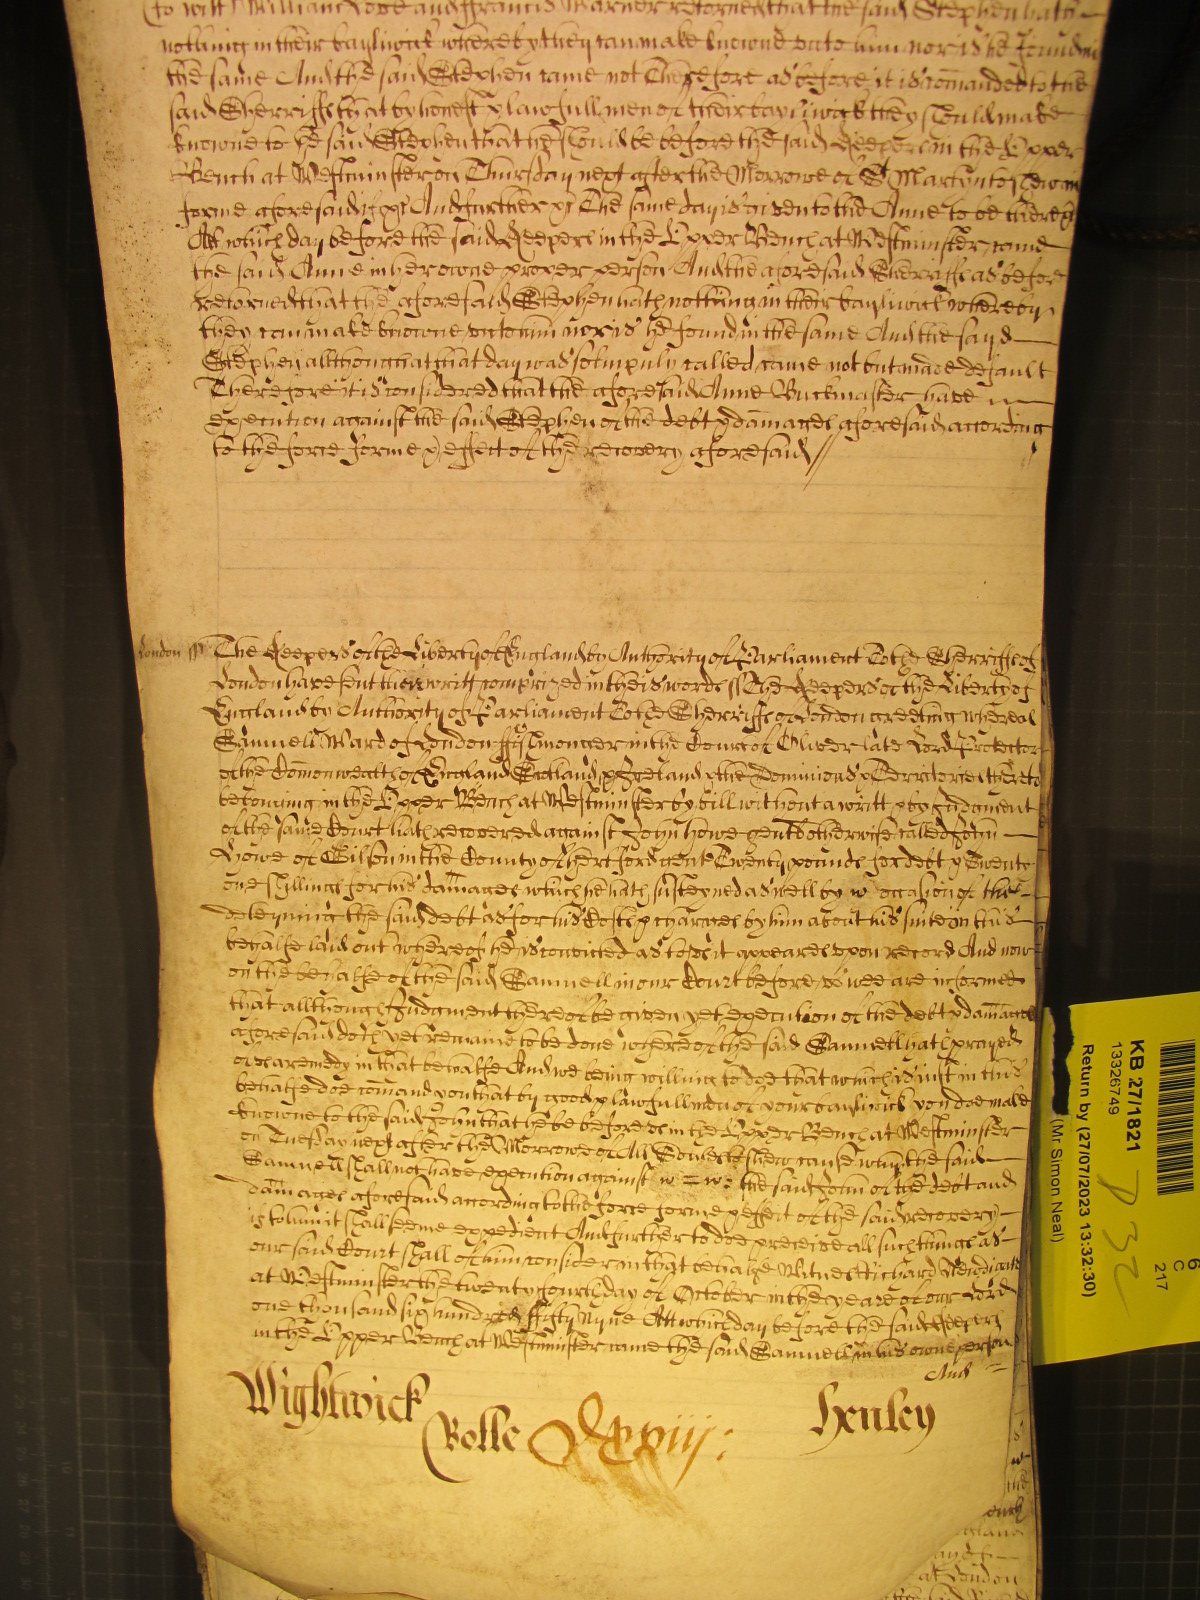 to witt William Love and Francis Warner retorned that the said Stephen hath
nothing in their bayliwick whereby they can make knowne unto him nor is he found in
the same And the said Stephen came not Therefore as before it is comanded to the
said Sherriffs that by honest & lawfull men of their bayliwick they should make
knowne to the said Stephen that he should be before the said Keepers in the Upper
Bench at Westminster on Thursday next after the Morrowe of St Martyn to shew in
forme aforesaid if &c And further &c The same day is given to the Anne to be there &c
Att which day before the said Keepers in the Upper Bench at Westminster came
the said Anne in her owne proper person And the aforesaid Sherriffs as before
retorned that the aforesaid Stephen hath nothing in their bayliwick whereby
they can make knowne unto him nor is he found in the same And the said
Stephen allthough at that day was solempnly called came not but made default
Therefore it is considered that the aforesaid Anne Buckmaster have
execution against the said Stephen of the debt & damages aforesaid according
to the force forme & effect of the recovery aforesaid //
London ss The Keepers of the Liberty of England by Authority of Parliament To the Sherriffs of
London have sent their writt comprized in theis words ss The Keepers of the Liberty of
England by Authority of Parliament To the Sherriffs of London greeting whereas
Samuell Ward of London ffishmonger in the Court of Oliver late Lord Protector
of the Comonwealth of England Scotland & Ireland & the Dominions & Territories thereto
belonging in the Upper Bench at Westminster by bill without a writt & by Judgment
of the same Court hath recovered against John Howe gent otherwise called John
Howe of Gilston in the County of Hertford gent Twenty pounds for debt & Twenty
one shillings for his damages which he hath susteyned as well by occasion of the
deteyning the said debt as for his Costs & charges by him about his suite in this
behalfe laid out whereof he is convicted as to us it appeares upon record And now
on the behalfe of the said Samuell in our Court before us wee are informed
that allthough Judgment thereof be given yet execution of the debt & damages
aforesaid doth yet remaine to be done whereof the said Samuell hath prayed
of us a remedy in that behalfe And we being willing to doe that which is just in this
behalfe doe comand you that by good & lawfull men of your bayliwick you doe make
knowne to the said John that he be before us in the Upper Bench at Westminster
on Tuesday next after the Morrowe of All Soules to shew cause why the said
Samuell shall not have execution against the said John of the debt and
damages aforesaid according to the force forme & effect of the said recovery
if to him it shall seeme expedient And further to doe & receive all such things as
our said Court shall of him consider in that behalfe Witnes Richard Newdigate
at Westminster the twenty fourth day of October in the yeare of our Lord
one thousand six hundred ffifty nyne Att which day before the said Keepers
in the Upper Bench at Westminster came the said Samuell in his owne person
And
Wightwick
Rolle
Henley
KB 27/1821
13326749
Return by (27/07/2023 13:32:30)
(Mr Simon Neal)
6
C
217